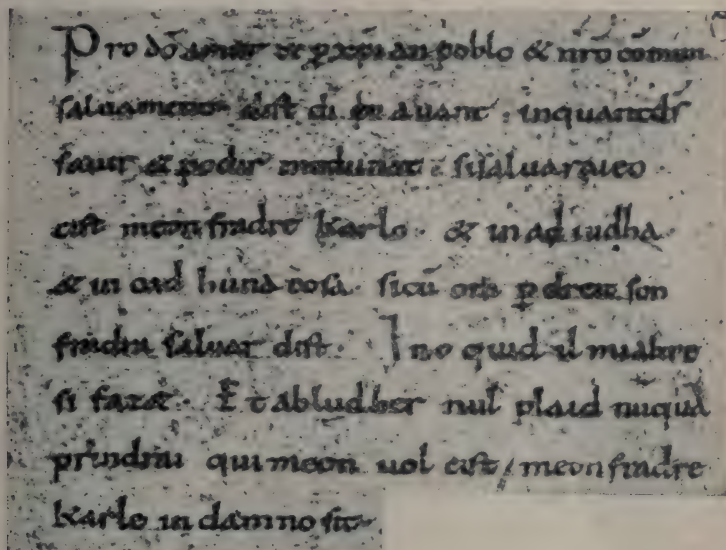 Pro dõ amur & ꝑ xp̃ian poblo & nr̃o cõmun
saluament dist di en auant · inquantd̃s
sauir & podir medunat · sisaluaraieo ·
cist meon fradre Karlo · & in adiudha ·
& in cad huna cosa · sicũ om ꝑ dreit son
fradra saluar dist · Ino quid il mialtre
si fazet · Et abludher nul plaid nũquã
prindrai qui meon uol cist meon fradre
Karle in damno sit ·